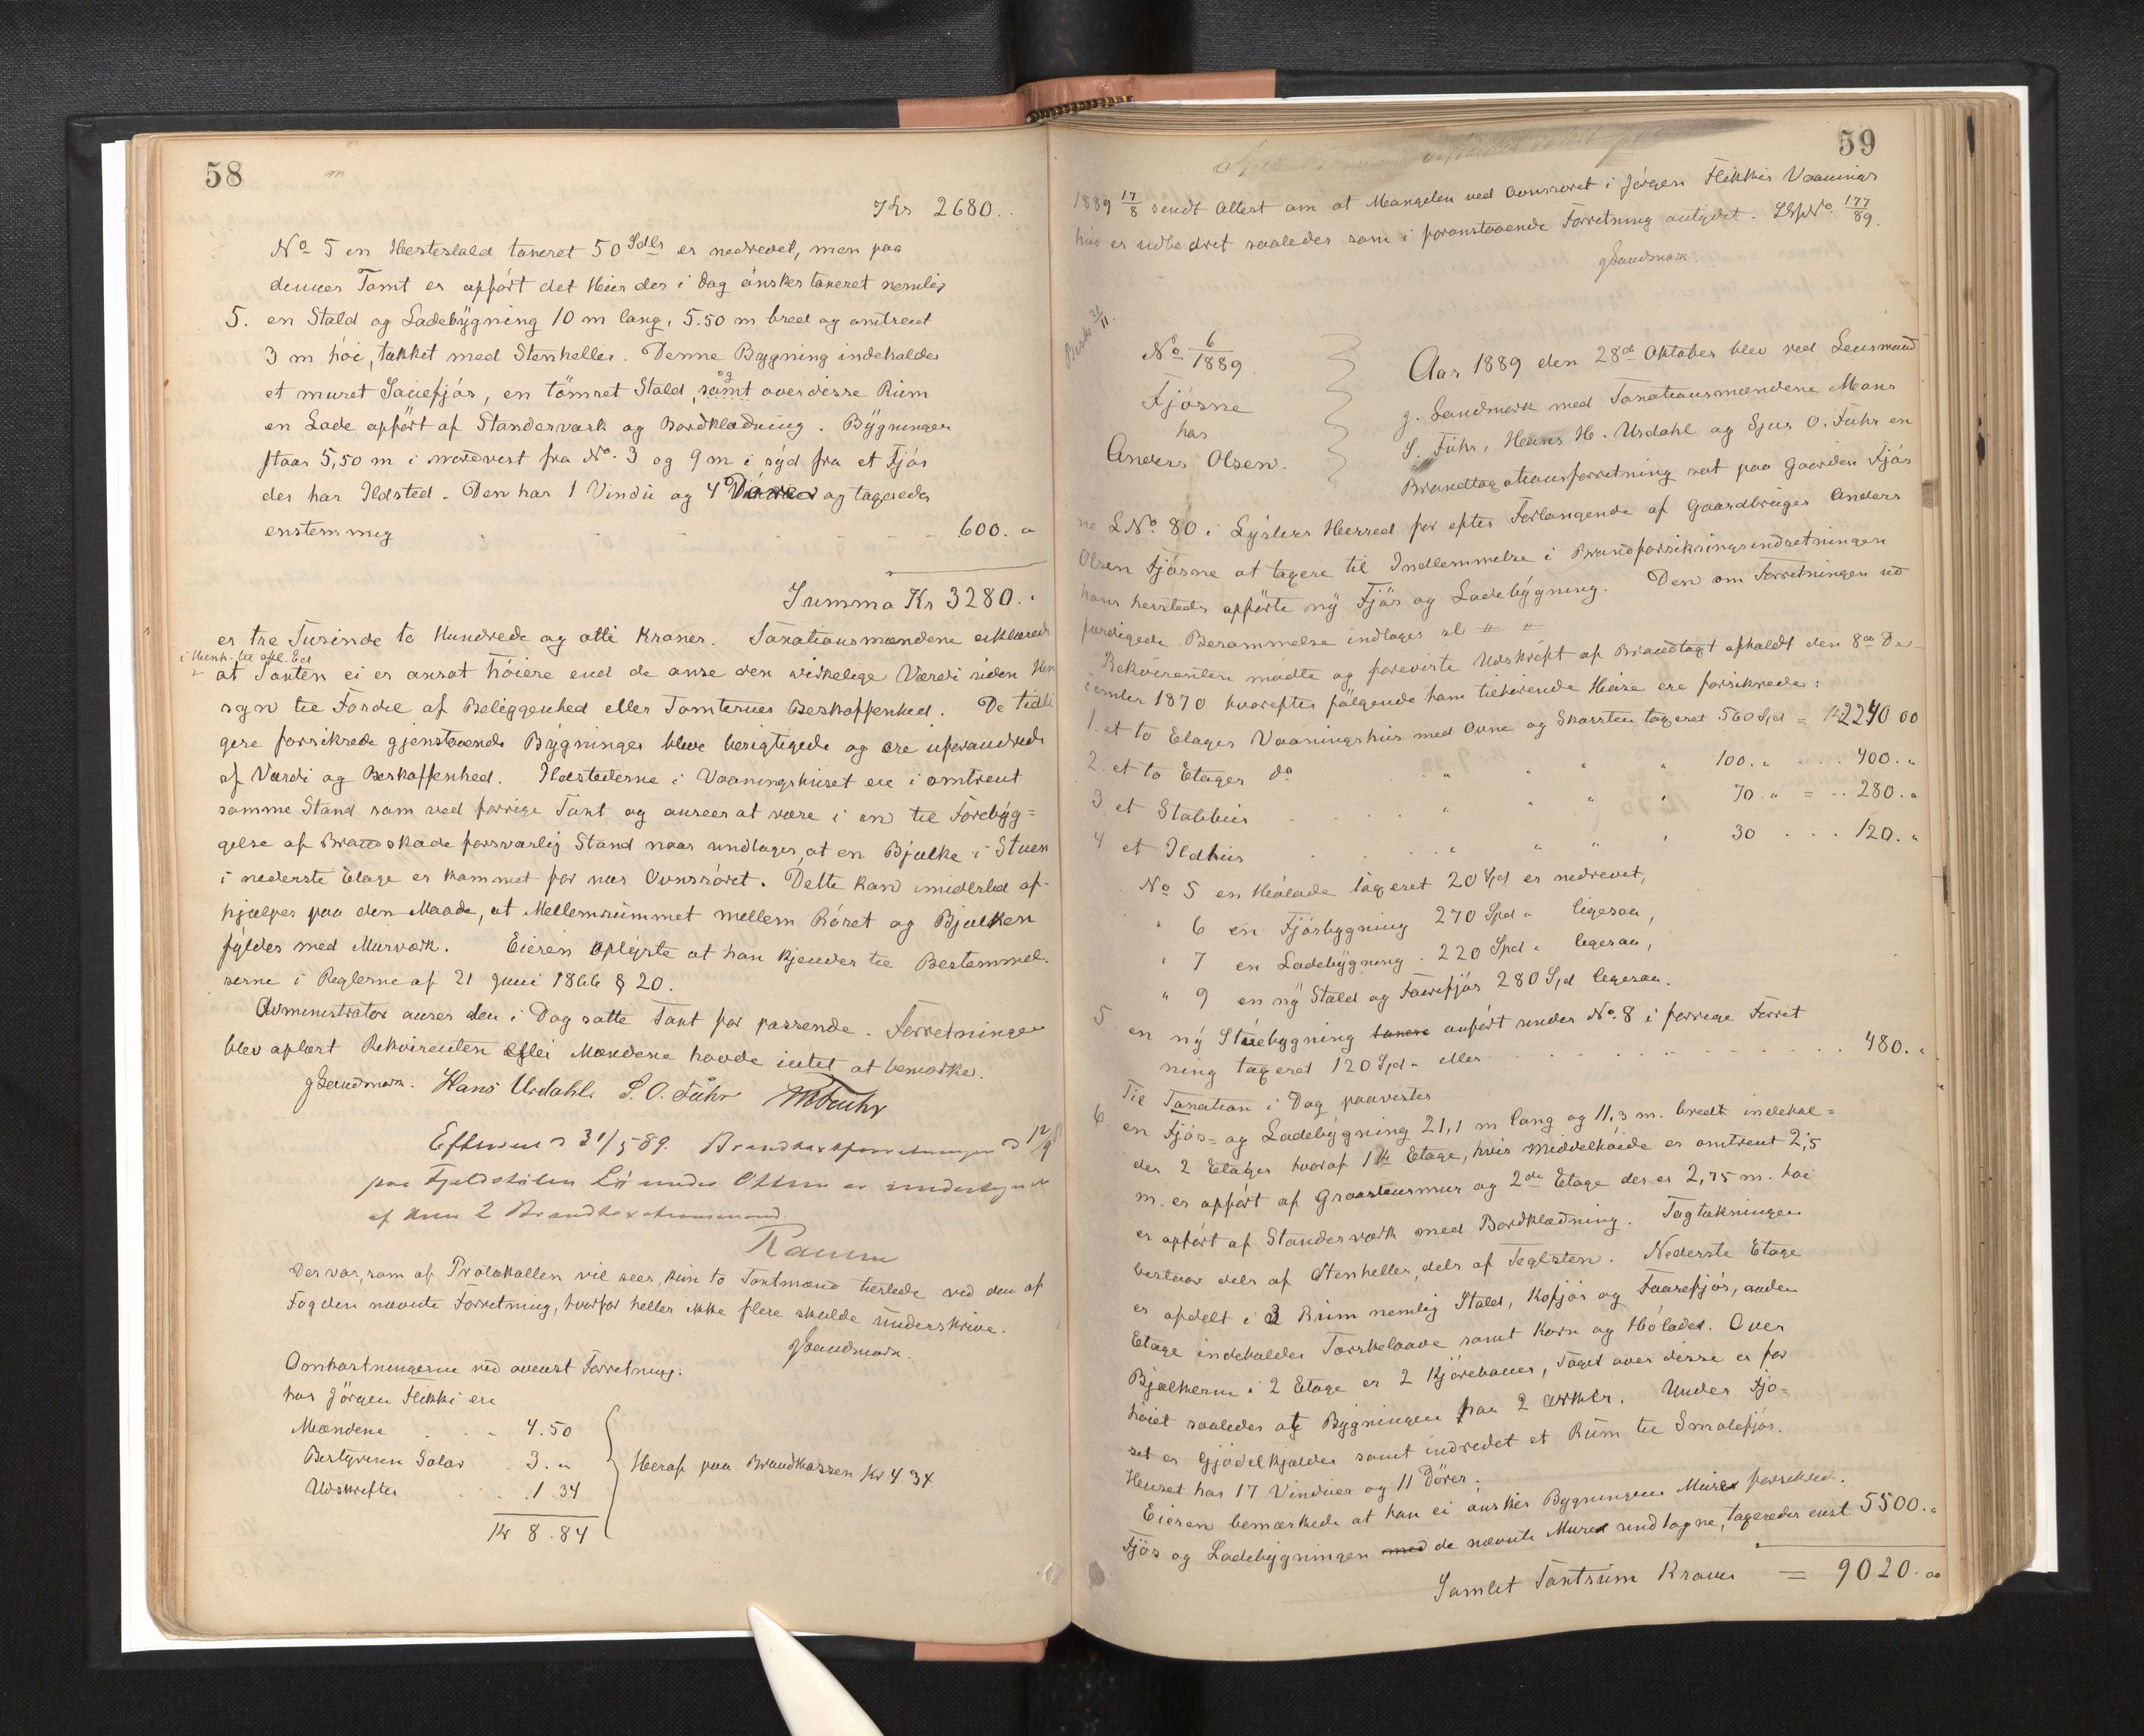 58
Kr 2680.
No 5 en Hestestald taxeret 50 Spdlr er nedrevet, men paa
dennes Tomt er opført det Huus der i Dag ønskes taxeret nemlig
5. en Stald og Ladebygning 10 m lang, 5.50 m bred og omtrent
3 m høi, tækket med Stenheller. Denne Bygning indeholder
et muret Sauefjøs, en tømret Stald, samt og over disse Rum
en Lade opført af Standerværk og Bordklædning. Bygningen
staar 5,50 m i nordvest fra No. 3 og 9 m i syd fra et Fjøs
der har Ildsted. Den har 1 Vindu og 4 Døre og taxeredes
enstemmig 600. "
Summa Kr 3280. "
er tre Tusinde to Hundrede og otti Kroner. Taxationsmændene erklærede
i Henh. til afl. Eed
at Taxten ei er ansat høiere end de anse den virkelige Værdi uden Hen
syn til Fordel af Beliggenhed eller Tomternes Beskaffenhed. De tidli
gere forsikrede gjenstaaende Bygninger bleve besigtigede og ere uforandrede
af Værdi og Beskaffenhed. Ildstederne i Vaaningshuset ere i omtrent
samme Stand som ved forrige Taxt og ansees at være i en til Forebyg=
gelse af Brandskade forsvarlig Stand naar undtages, at en Bjælke i Stuen
i nederste Etage er kommet for nær Ovnsrøret. Dette kan imidlertid af-
hjælpes paa den Maade, at Mellemrummet mellem Røret og Bjælken
fyldes med Murværk. Eieren oplyste at han kjender til Bestemmel-
serne i Reglerne af 21 Juni 1866 § 20.
Administrator anser den i Dag satte Taxt for passende. Forretningen
blev oplæst Rekvirenten eller Mændene havde intet at bemærke.
g Landmark. Hans Urdahl. S. O. Fuhr MSFuhr
Efterseet d 31/5 89. Brandtaxtforretningen d 12/9
paa Fjeldstølen Li under Ottum er undertegnet
af kun 2 Brandtaxationsmænd.
Der var, som af Protokollen vil sees, kun to Taxtmænd tilstede ved den af
Fogden nævnte Forretning, hvorfor heller ikke flere skulde underskrive.
g Landmark.
Omkostningerne ved ovenst Forretning
hos Jørgen Flikki ere
Mændene 4.50
Bestyreren Salar 3. "
Udskrifter 1.34
Kr 8.84
Heraf paa Brandkassen Kr 4.34
59
1889 17/8 sendt Attest om at Mangelen ved Ovnsrøret i Jørgen Flikkis Vaanings
hus er udbedret saaledes som i foranstaaende Forretning antydet. No 177/89.
g Landmark.
Besk. 21/11.
No 6/1889
Fjøsne
hos
Anders Olsen.
Aar 1889 den 28de Oktober blev ved Lensmand
g. Landmark med Taxationsmændene Mons
S. Fuhr, Hans H. Urdahl og Sjur O. Fuhr en
Brandtaxationsforretning sat paa Gaarden Fjøs
ne LNo. 80 i Lysters Herred for efter Forlangende af Gaardbruger Anders
Olsen Fjøsne at taxere til Indlemmelse i Brandforsikringsindretningen
hans hersteds opførte ny Fjøs og Ladebygning. Den om Forretningen ud
færdigede Berammelse indtages sl # #
Rekvirenten mødte og foreviste Udskrift af Brandtaxt afholdt den 8de De-
cember 1870 hvorefter følgende ham tilhørende Huse ere forsikrede:
1. et to Etages Vaaningshus med Ovne og Skorsten taxeret 560 Spd = Kr 2240 00
2. et to Etages do " " " 100. " 400. "
3 et Stabbur " " " " 70. " = 280. "
4 et Ildhus " " " " 30 120. "
No 5 en Hølade taxeret 20 Spd er nedrevet,
" 6 en Fjøsbygning 270 Spd " ligesaa,
" 7 en Ladebygning. 220 Spd " ligesaa,
" 9 en ny Stald og Faarefjøs 280 Spd ligesaa.
5 en ny Stuebygning taxere anført under No. 8 i forrige Forret
ning taxeret 120 Spd " eller 480. "
Til Taxation i Dag paavistes
6. en Fjøs= og Ladebygning 21,1 m lang og 11,3 m. bredt indehol=
der 2 Etager hvoraf 1ste Etage, hvis Middelhøide er omtrent 2,5
m. er opført af Graastensmur og 2den Etage der er 2,75 m. høi
er opført af Standerværk med Bordklædning. Tagtækningen
bestaar dels af Stenheller, dels af Teglsten. Nederste Etage
er afdelt i 3 Rum nemlig Stald, Kofjøs og Faarefjøs, anden
Etage indeholder Tørskelaave samt Korn og Hølader. Over
Bjælkerne i 2 Etage er 2 Kjørebroer, Taget over disse er for
høiet saaledes at Bygningen har 2 Arker. Under Fjø=
set er Gjødelkjelder samt indredet et Rum til Smalefjøs.
Huset har 17 Vinduer og 11 Døre.
Eieren bemærkede at han ei ønsker Bygningens Mure forsikred.
Fjøs og Ladebygningen med de nævnte Mure undtagne, taxeredes enst 5500. "
Samlet Taxtsum Kroner = 9020. 00